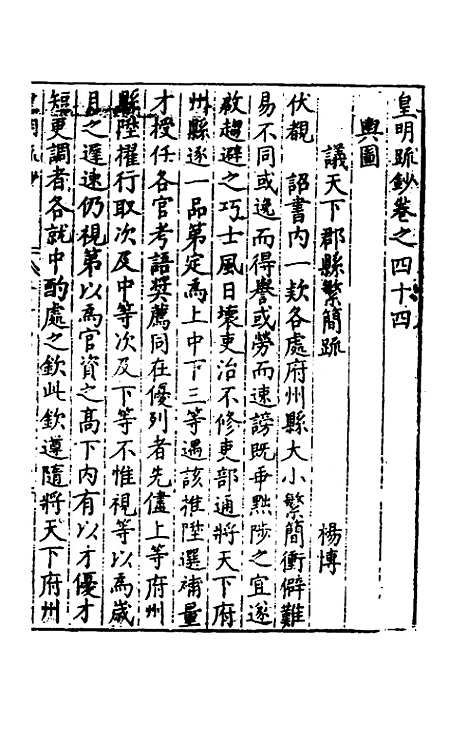 皇明疏鈔卷之四十四
輿圖
議天下郡縣繁簡疏 楊博
伏覩 詔書內一欵各處府州縣大小繁簡衝僻難
易不同或逸而得譽或勞而速謗旣乖黜陟之宜遂
啟趨避之巧士風日壞吏治不修吏部通將天下府
州縣逐一品第定爲上中下三等遇該推陞選補量
才授任各官考語奬薦同在優列者先儘上等府州
縣陞擢行取次及中等次及下等不惟視等以爲歲
月之遲速仍視第以爲官資之高下內有以才優才
短更調者各就中酌處之欽此欽遵隨將天下府州